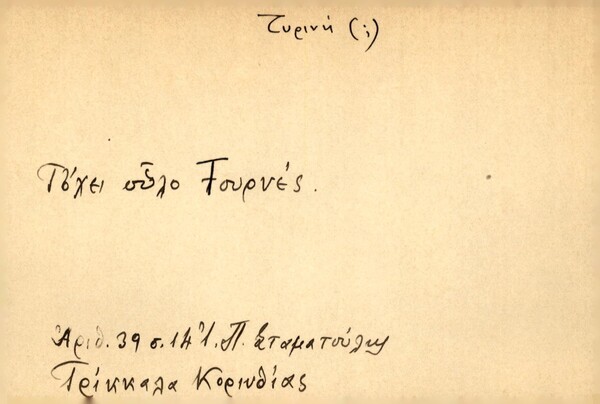 Τυρινή (;)
Τὄχει οὖλο Τουρνές.
Ἀριθ. 39 σ. 141. Π. Σταματούλης
Τρίκκαλα Κορινθίας